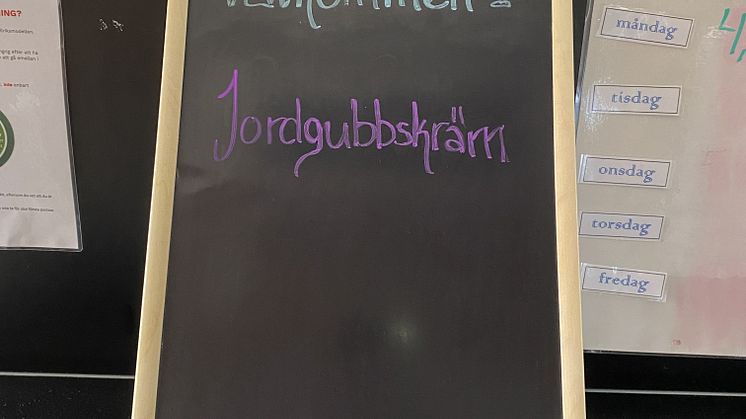 Välkommen!
Jordgubbskräm
måndag
tisdag
onsdag
torsdag
fredag
NING?